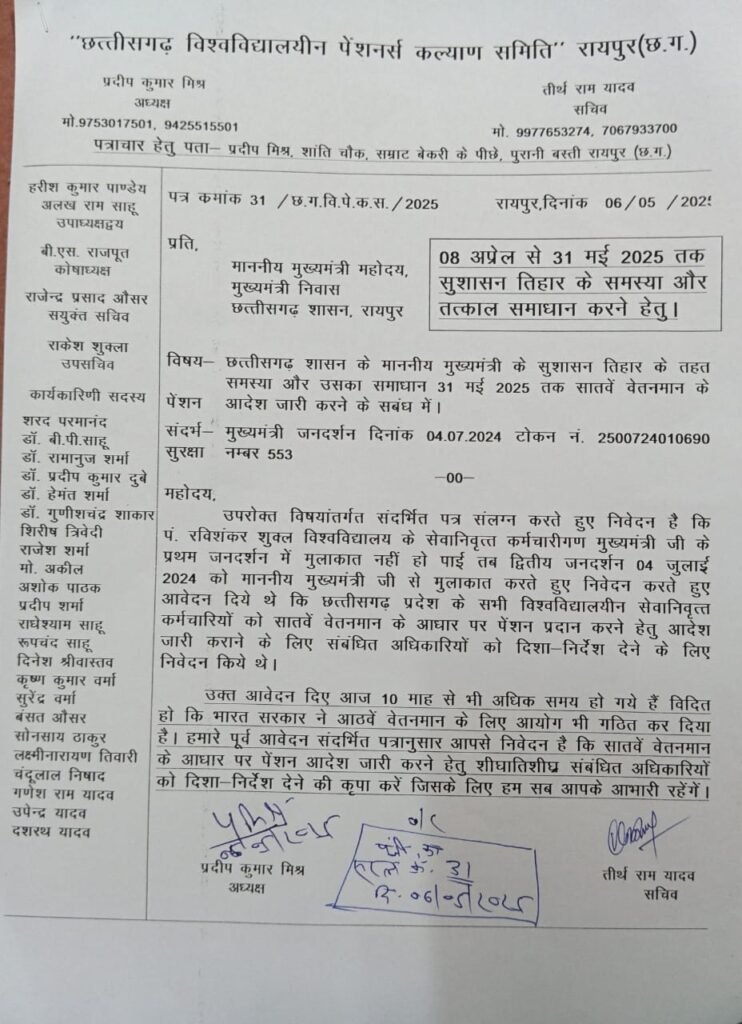 "छत्तीसगढ़ विश्वविद्यालयीन पेंशनर्स कल्याण समिति" रायपुर(छ.ग.)
प्रदीप कुमार मिश्र
अध्यक्ष
मो.9753017501, 9425515501
तीर्थ राम यादव
सचिव
मो. 9977653274, 7067933700
पत्राचार हेतु पता– प्रदीप मिश्र, शांति चौक, सम्राट बेकरी के पीछे, पुरानी बस्ती रायपुर (छ.ग.)
हरीश कुमार पाण्डेय
अलख राम साहू
उपाध्यक्षद्वय
बी.एस. राजपूत
कोषाध्यक्ष
राजेन्द्र प्रसाद औसर
सयुक्त सचिव
राकेश शुक्ला
उपसचिव
कार्यकारिणी सदस्य
शरद परमानंद
डॉ. बी.पी.साहू
डॉ. रामानुज शर्मा
डॉ. प्रदीप कुमार दुबे
डॉ. हेमंत शर्मा
डॉ. गुणीशचंद्र शाकार
शिरीष त्रिवेदी
राजेश शर्मा
मो. अकील
अशोक पाठक
प्रदीप शर्मा
राधेश्याम साहू
रूपचंद साहू
दिनेश श्रीवास्तव
कृष्ण कुमार वर्मा
सुरेंद्र वर्मा
बंसत औसर
सोनसाय ठाकुर
लक्ष्मीनारायण तिवारी
चंदूलाल निषाद
गणेश राम यादव
उपेन्द्र यादव
दशरथ यादव
पत्र कमांक 31 /छ.ग.वि.पे.क.स./2025 रायपुर,दिनांक 06/05 /2025
प्रति,
माननीय मुख्यमंत्री महोदय,
मुख्यमंत्री निवास
छत्तीसगढ़ शासन, रायपुर
08 अप्रेल से 31 मई 2025 तक
सुशासन तिहार के समस्या और
तत्काल समाधान करने हेतु।
विषय– छत्तीसगढ़ शासन के माननीय मुख्यमंत्री के सुशासन तिहार के तहत
समस्या और उसका समाधान 31 मई 2025 तक सातवें वेतनमान के
पेंशन आदेश जारी करने के सबंध में।
संदर्भ– मुख्यमंत्री जनदर्शन दिनांक 04.07.2024 टोकन नं. 2500724010690
सुरक्षा नम्बर 553
–00–
महोदय,
उपरोक्त विषयांतर्गत संदर्भित पत्र संलग्न करते हुए निवेदन है कि
पं. रविशंकर शुक्ल विश्वविद्यालय के सेवानिवृत्त कर्मचारीगण मुख्यमंत्री जी के
प्रथम जनदर्शन में मुलाकात नहीं हो पाई तब द्वितीय जनदर्शन 04 जुलाई
2024 को माननीय मुख्यमंत्री जी से मुलाकात करते हुए निवेदन करते हुए
आवेदन दिये थे कि छत्तीसगढ़ प्रदेश के सभी विश्वविद्यालयीन सेवानिवृत्त
कर्मचारियों को सातवें वेतनमान के आधार पर पेंशन प्रदान करने हेतु आदेश
जारी कराने के लिए संबंधित अधिकारियों को दिशा–निर्देश देने के लिए
निवेदन किये थे।
उक्त आवेदन दिए आज 10 माह से भी अधिक समय हो गये हैं विदित
हो कि भारत सरकार ने आठवें वेतनमान के लिए आयोग भी गठित कर दिया
है। हमारे पूर्व आवेदन संदर्भित पत्रानुसार आपसे निवेदन है कि सातवें वेतनमान
के आधार पर पेंशन आदेश जारी करने हेतु शीघातिशीघ्र संबंधित अधिकारियों
को दिशा–निर्देश देने की कृपा करें जिसके लिए हम सब आपके आभारी रहेंगें।
06/05/2025
प्रदीप कुमार मिश्र
अध्यक्ष
o/c
क्रं. 31
दि. 06/05/2025
तीर्थ राम यादव
सचिव